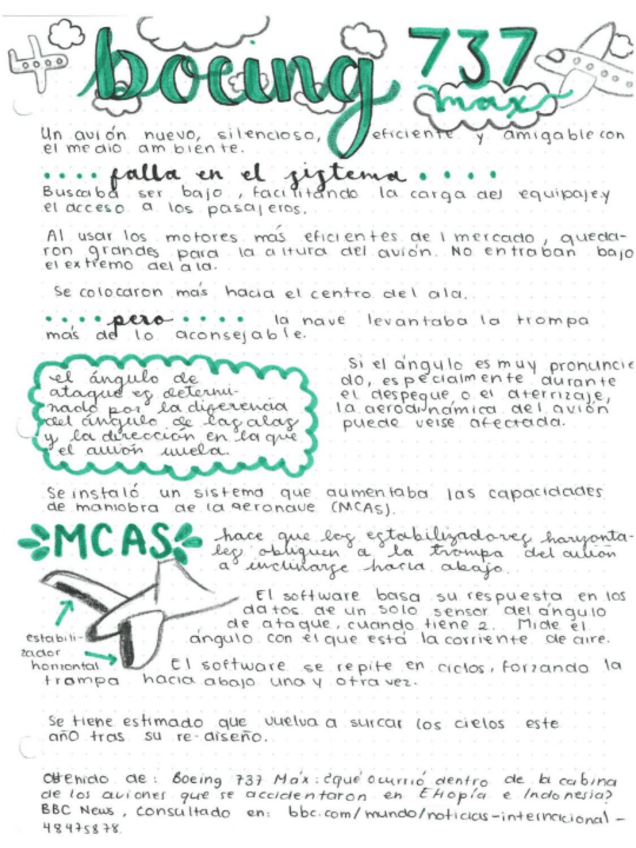 boeing 737
max
Un avión nuevo, silencioso, eficiente y amigable con
el medio ambiente.
falla en el sistema
Buscaba ser bajo, facilitando la carga del equipaje y
el acceso a los pasajeros.
Al usar los motores más eficientes del mercado, queda-
ron grandes para la altura del avión. No entraban bajo
el extremo del ala.
Se colocaron más hacia el centro del ala.
pero la nave levantaba la trompa
más de lo aconsejable.
el ángulo de
ataque es determi-
nado por la diferencia
del ángulo de las alas
y la dirección en la que
el avión vuela.
Si el ángulo es muy pronuncia
do, especialmente durante
el despegue o el aterrizaje,
la aerodinámica del avión
puede verse afectada.
Se instaló un sistema que aumentaba las capacidades
de maniobra de la aeronave (MCAS).
MCAS hace que los estabilizadores horizonta-
les obliguen a la trompa del avión
a inclinarse hacia abajo.
El software basa su respuesta en los
datos de un solo sensor del ángulo
de ataque, cuando tiene 2. Mide el
ángulo con el que está la corriente de aire.
estabili-
zador
horizontal
El software se repite en ciclos, forzando la
trompa hacia abajo una y otra vez.
Se tiene estimado que vuelva a surcar los cielos este
año tras su re-diseño.
Obtenido de: Boeing 737 Max: ¿qué ocurrió dentro de la cabina
de los aviones que se accidentaron en Etiopía e Indonesia?
BBC News, consultado en: bbc.com/mundo/noticias-internacional-
48475878.